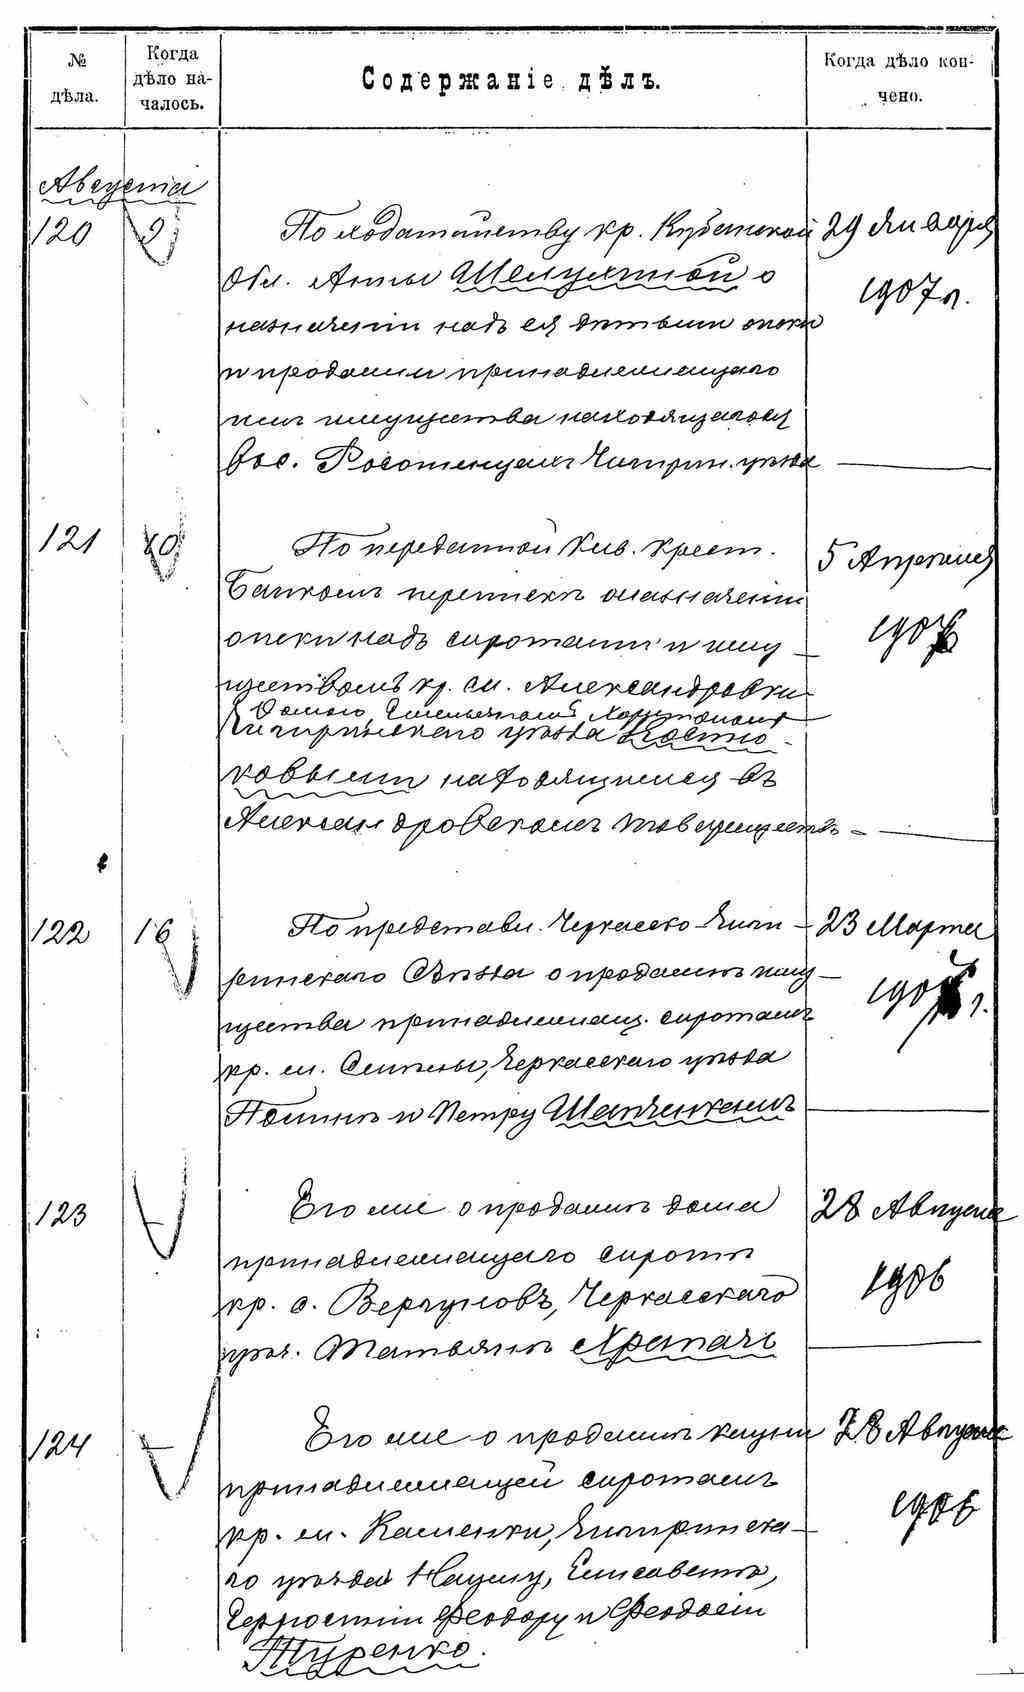 № дѣла.
Когда дѣло началось.
Содержаніе дѣлъ.
Когда дѣло кончено.
Августа
120 9 По ходатайству кр. Кубанской 29 Января
Обл. Анны о 1907 г.
назначеніи надъ ея дѣтьми опеки
и продажи принадлежащаго
имъ имущества находящагося
въ с. Росошенцахъ Чигирин. уѣзда
121 10 По переданной Кив. Крест. 5 Апрѣля
Банкомъ перепискѣ о назначеніи
опеки надъ сиротами и иму
ществомъ кр. м. Александровки
Чигиринскаго уѣзда Костю-
ковыми находящимся въ
Александровскомъ товариществѣ
122 16 По представл. Черкасско-Чиги- 23 Марта
ринскаго Съѣзда о продажѣ иму
щества принадлежащ. сиротамъ
кр. м. Смѣлы, Черкасскаго уѣзда
и Петру Шапченкамъ
123 Его же о продажѣ дома 28 Августа
принадлежащаго сиротѣ 1906
кр. с. Вергуновъ, Черкасскаго
уѣз. Татьянѣ Храпачъ
124 Его же о продажѣ кузни 28 Августа
принадлежащей сиротамъ 1906
кр. м. Каменки, Чигиринска-
го уѣзда Науму, Елисаветѣ,
Феодору и Феодосіи
Туренко.